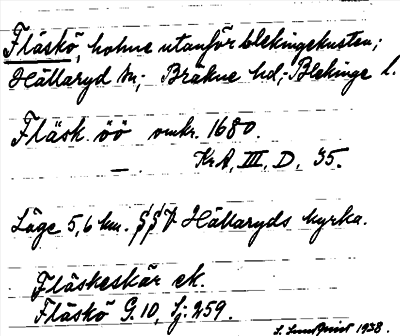 Fläskö, holme utanför blekingekusten;
Hällaryd sn; Bräkne hd; Blekinge l.
Fläsk öö omkr. 1680.
— KrA, III, D, 35.
Läge 5,6 km. SSV Hällaryds kyrka.
Fläskeskär ek.
Fläskö G. 10, Sj: 259.
1938.